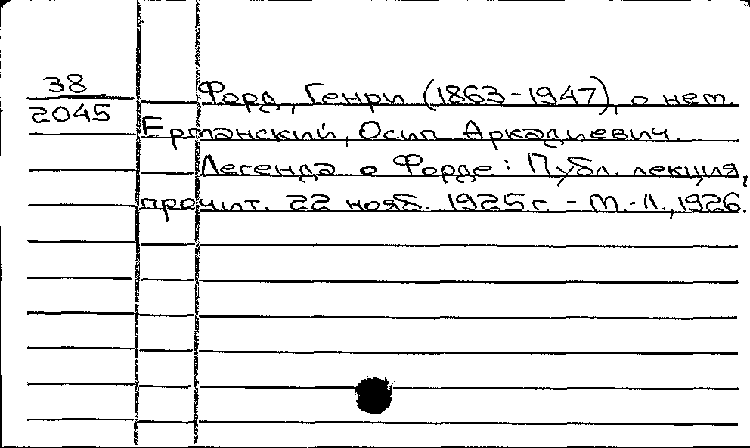 38
2045
Форд, Генри (1863-1947), о нем.
Ерманский, Осип Аркадиевич.
Легенда о Форде: Публ. лекция,
прочит. 22 нояб. 1925 г. - М.-Л., 1926.